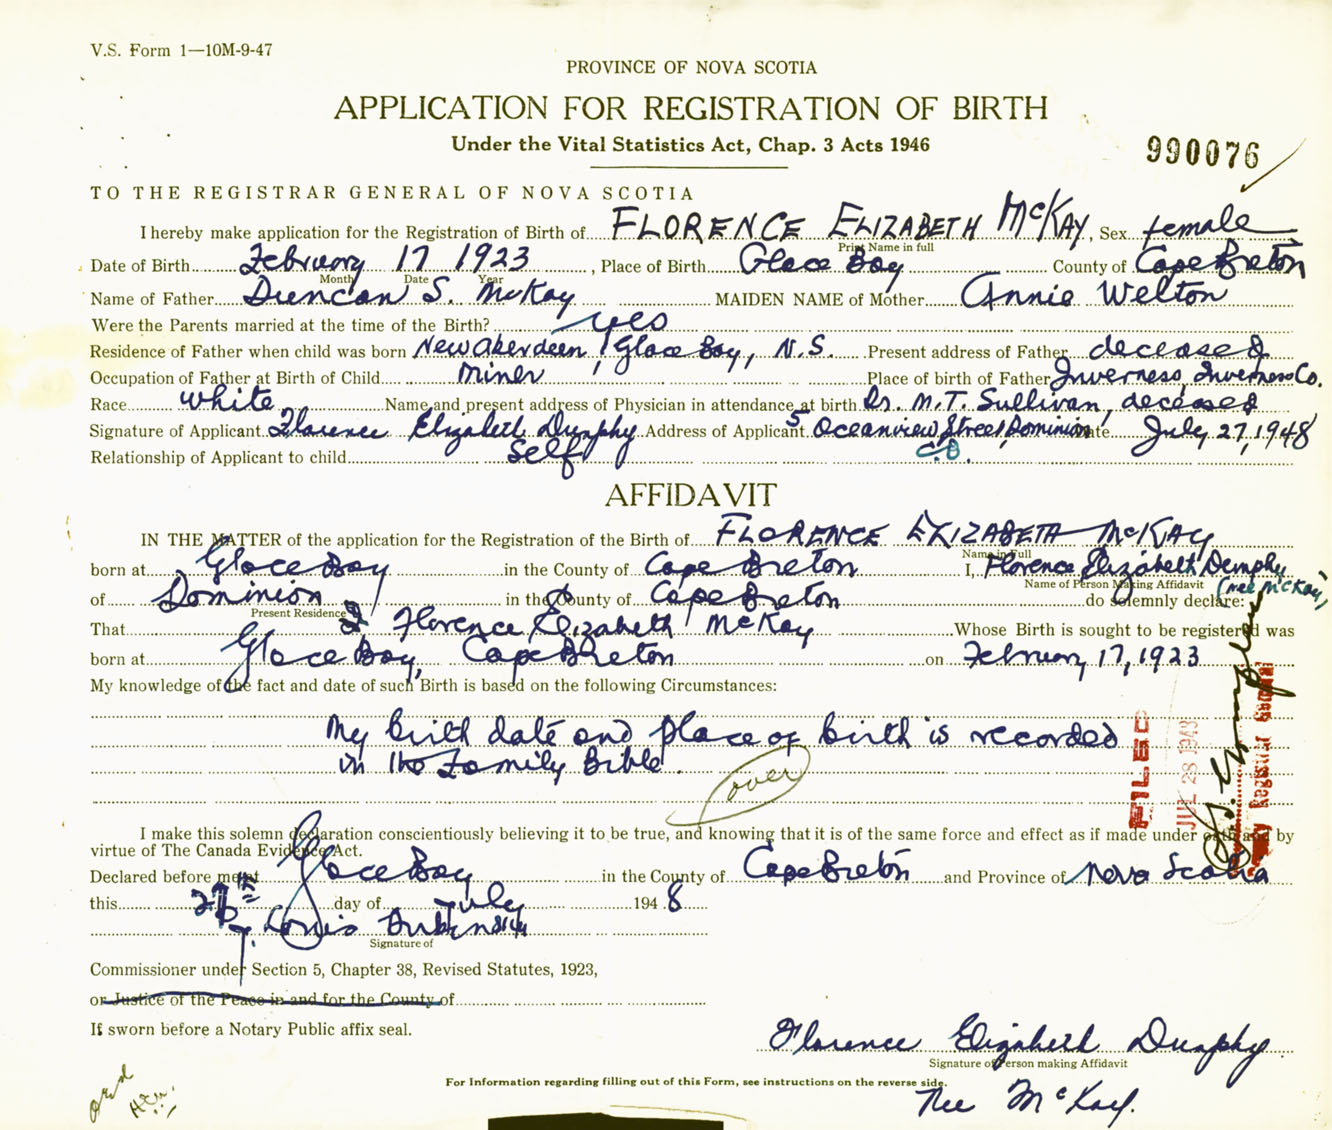 V.S. Form 1—10M-9-47
PROVINCE OF NOVA SCOTIA
APPLICATION FOR REGISTRATION OF BIRTH
Under the Vital Statistics Act, Chap. 3 Acts 1946
990076
TO THE REGISTRAR GENERAL OF NOVA SCOTIA
I hereby make application for the Registration of Birth of FLORENCE ELIZABETH McKAY, Sex female
Print Name in full
Date of Birth February 17 1923, Place of Birth Glace Bay County of Cape Breton
Month Date Year
Name of Father Duncan S. McKay MAIDEN NAME of Mother Annie Welton
Were the Parents married at the time of the Birth? yes
Residence of Father when child was born New Aberdeen, Glace Bay, N.S. Present address of Father deceased
Occupation of Father at Birth of Child Miner Place of birth of Father Inverness, Inverness Co.
Race white Name and present address of Physician in attendance at birth Dr. M.T. Sullivan, deceased
Signature of Applicant Florence Elizabeth Dunphy Address of Applicant 5 Oceanview Street, Dominion Date July 27, 1948
C.B.
Relationship of Applicant to child Self
AFFIDAVIT
IN THE MATTER of the application for the Registration of the Birth of FLORENCE ELIZABETH McKAY
Name in Full
born at Glace Bay in the County of Cape Breton I, Florence Elizabeth Dunphy
Name of Person Making Affidavit (nee McKay)
of Dominion in the County of Cape Breton do solemnly declare:
Present Residence
That I Florence Elizabeth McKay Whose Birth is sought to be registered was
born at Glace Bay, Cape Breton on February 17, 1923
My knowledge of the fact and date of such Birth is based on the following Circumstances:
My birth date and place of birth is recorded
in the Family Bible.
over
FILED
JUL 28 1948
Registrar General
I make this solemn declaration conscientiously believing it to be true, and knowing that it is of the same force and effect as if made under oath and by
virtue of The Canada Evidence Act.
Declared before me at Glace Bay in the County of Cape Breton and Province of Nova Scotia
this day of July 1948
Louis
Signature of
Commissioner under Section 5, Chapter 38, Revised Statutes, 1923,
or Justice of the Peace in and for the County of
If sworn before a Notary Public affix seal.
Florence Elizabeth Dunphy
Signature of Person making Affidavit
For Information regarding filling out of this Form, see instructions on the reverse side.
Nee McKay.